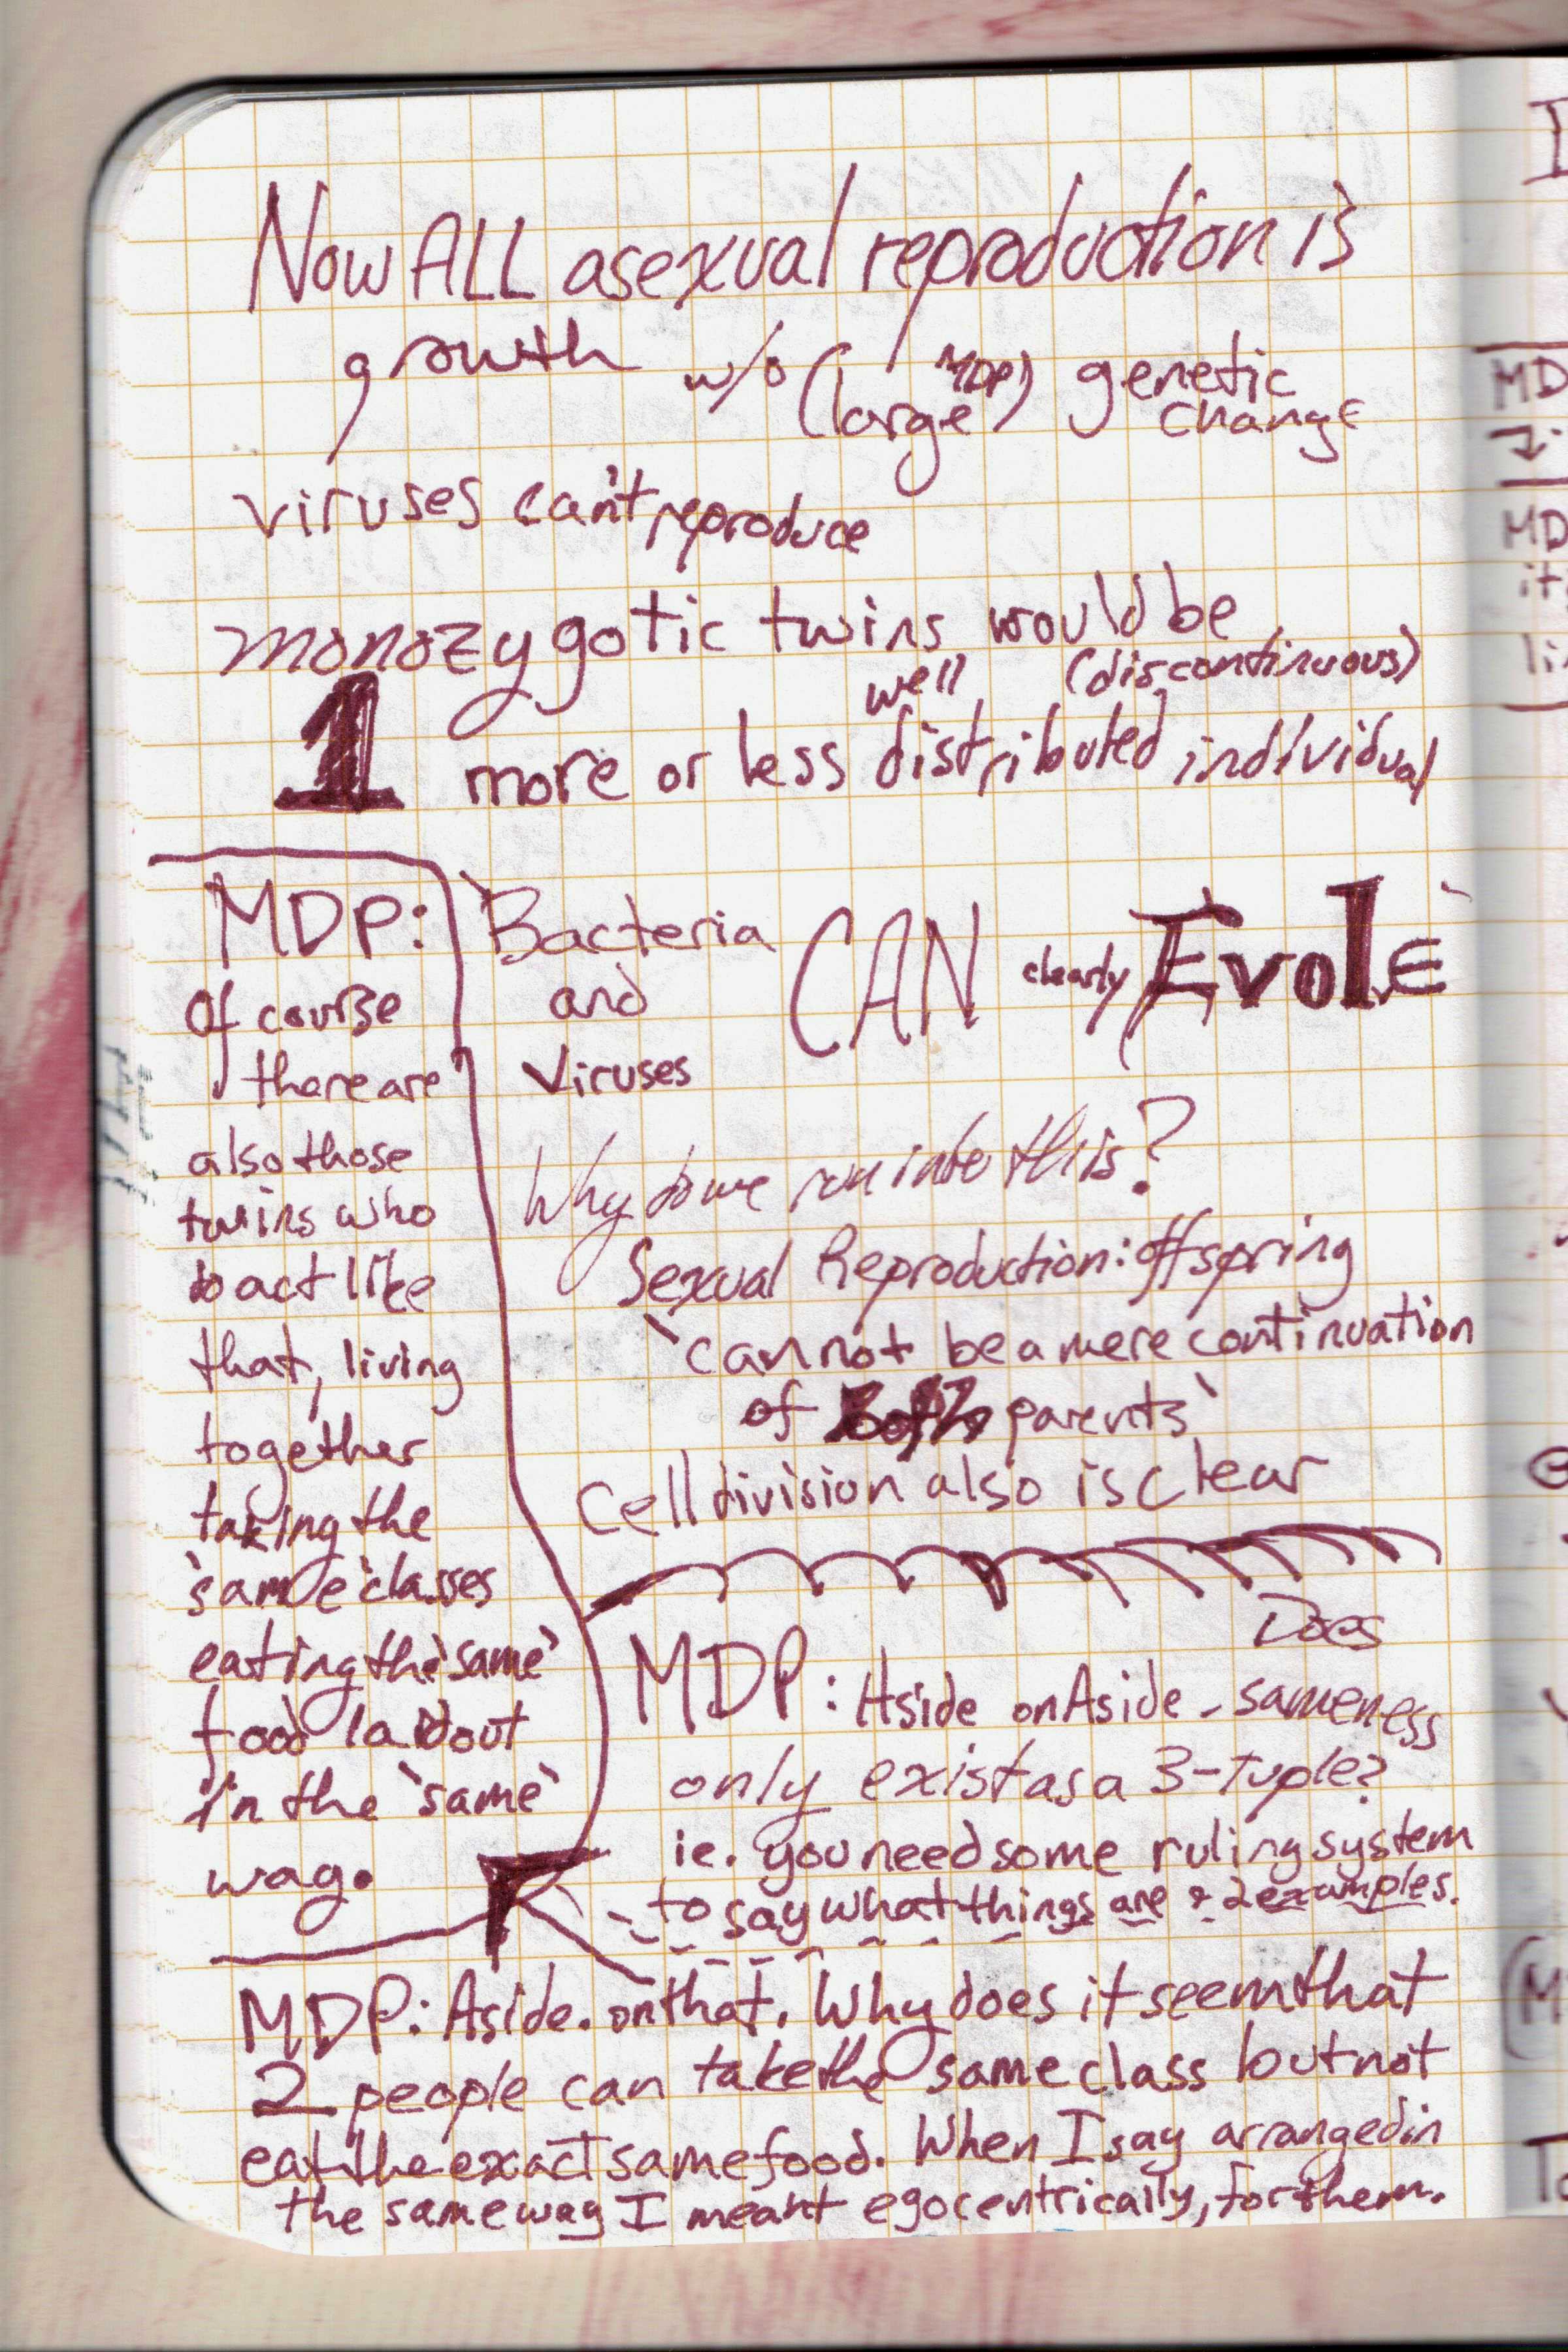 Now ALL asexual reproduction is
growth w/o (large MDP) genetic
change
viruses can't reproduce
monozygotic twins would be
well (discontinuous)
1 more or less distributed individual
MDP:
Of course
there are
also those
twins who
to act like
that, living
together
taking the
`same` classes
eating the `same`
food laid out
in the `same`
way.
`Bacteria
and
Viruses
CAN clearly Evolve`
Why do we run into this?
Sexual Reproduction: offspring
`cannot be a mere continuation
of both parents`
Cell division also is clear
Does
MDP: Aside on Aside - sameness
only exist as a 3-tuple?
ie. you need some ruling system
to say what things are & 2 examples.
MDP: Aside. on that. Why does it seem that
2 people can take the same class but not
eat the exact same food. When I say arranged in
the same way I meant egocentrically, for them.
I
MD
MD
it
li
(M
To